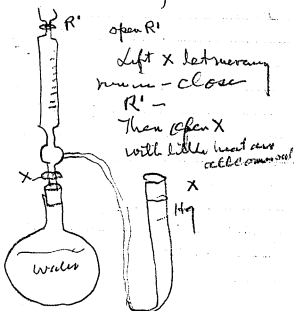 R'
open R'
Lift X let mercury
run in - close
R' -
Then open X
with little heat
X
X
Hg
water